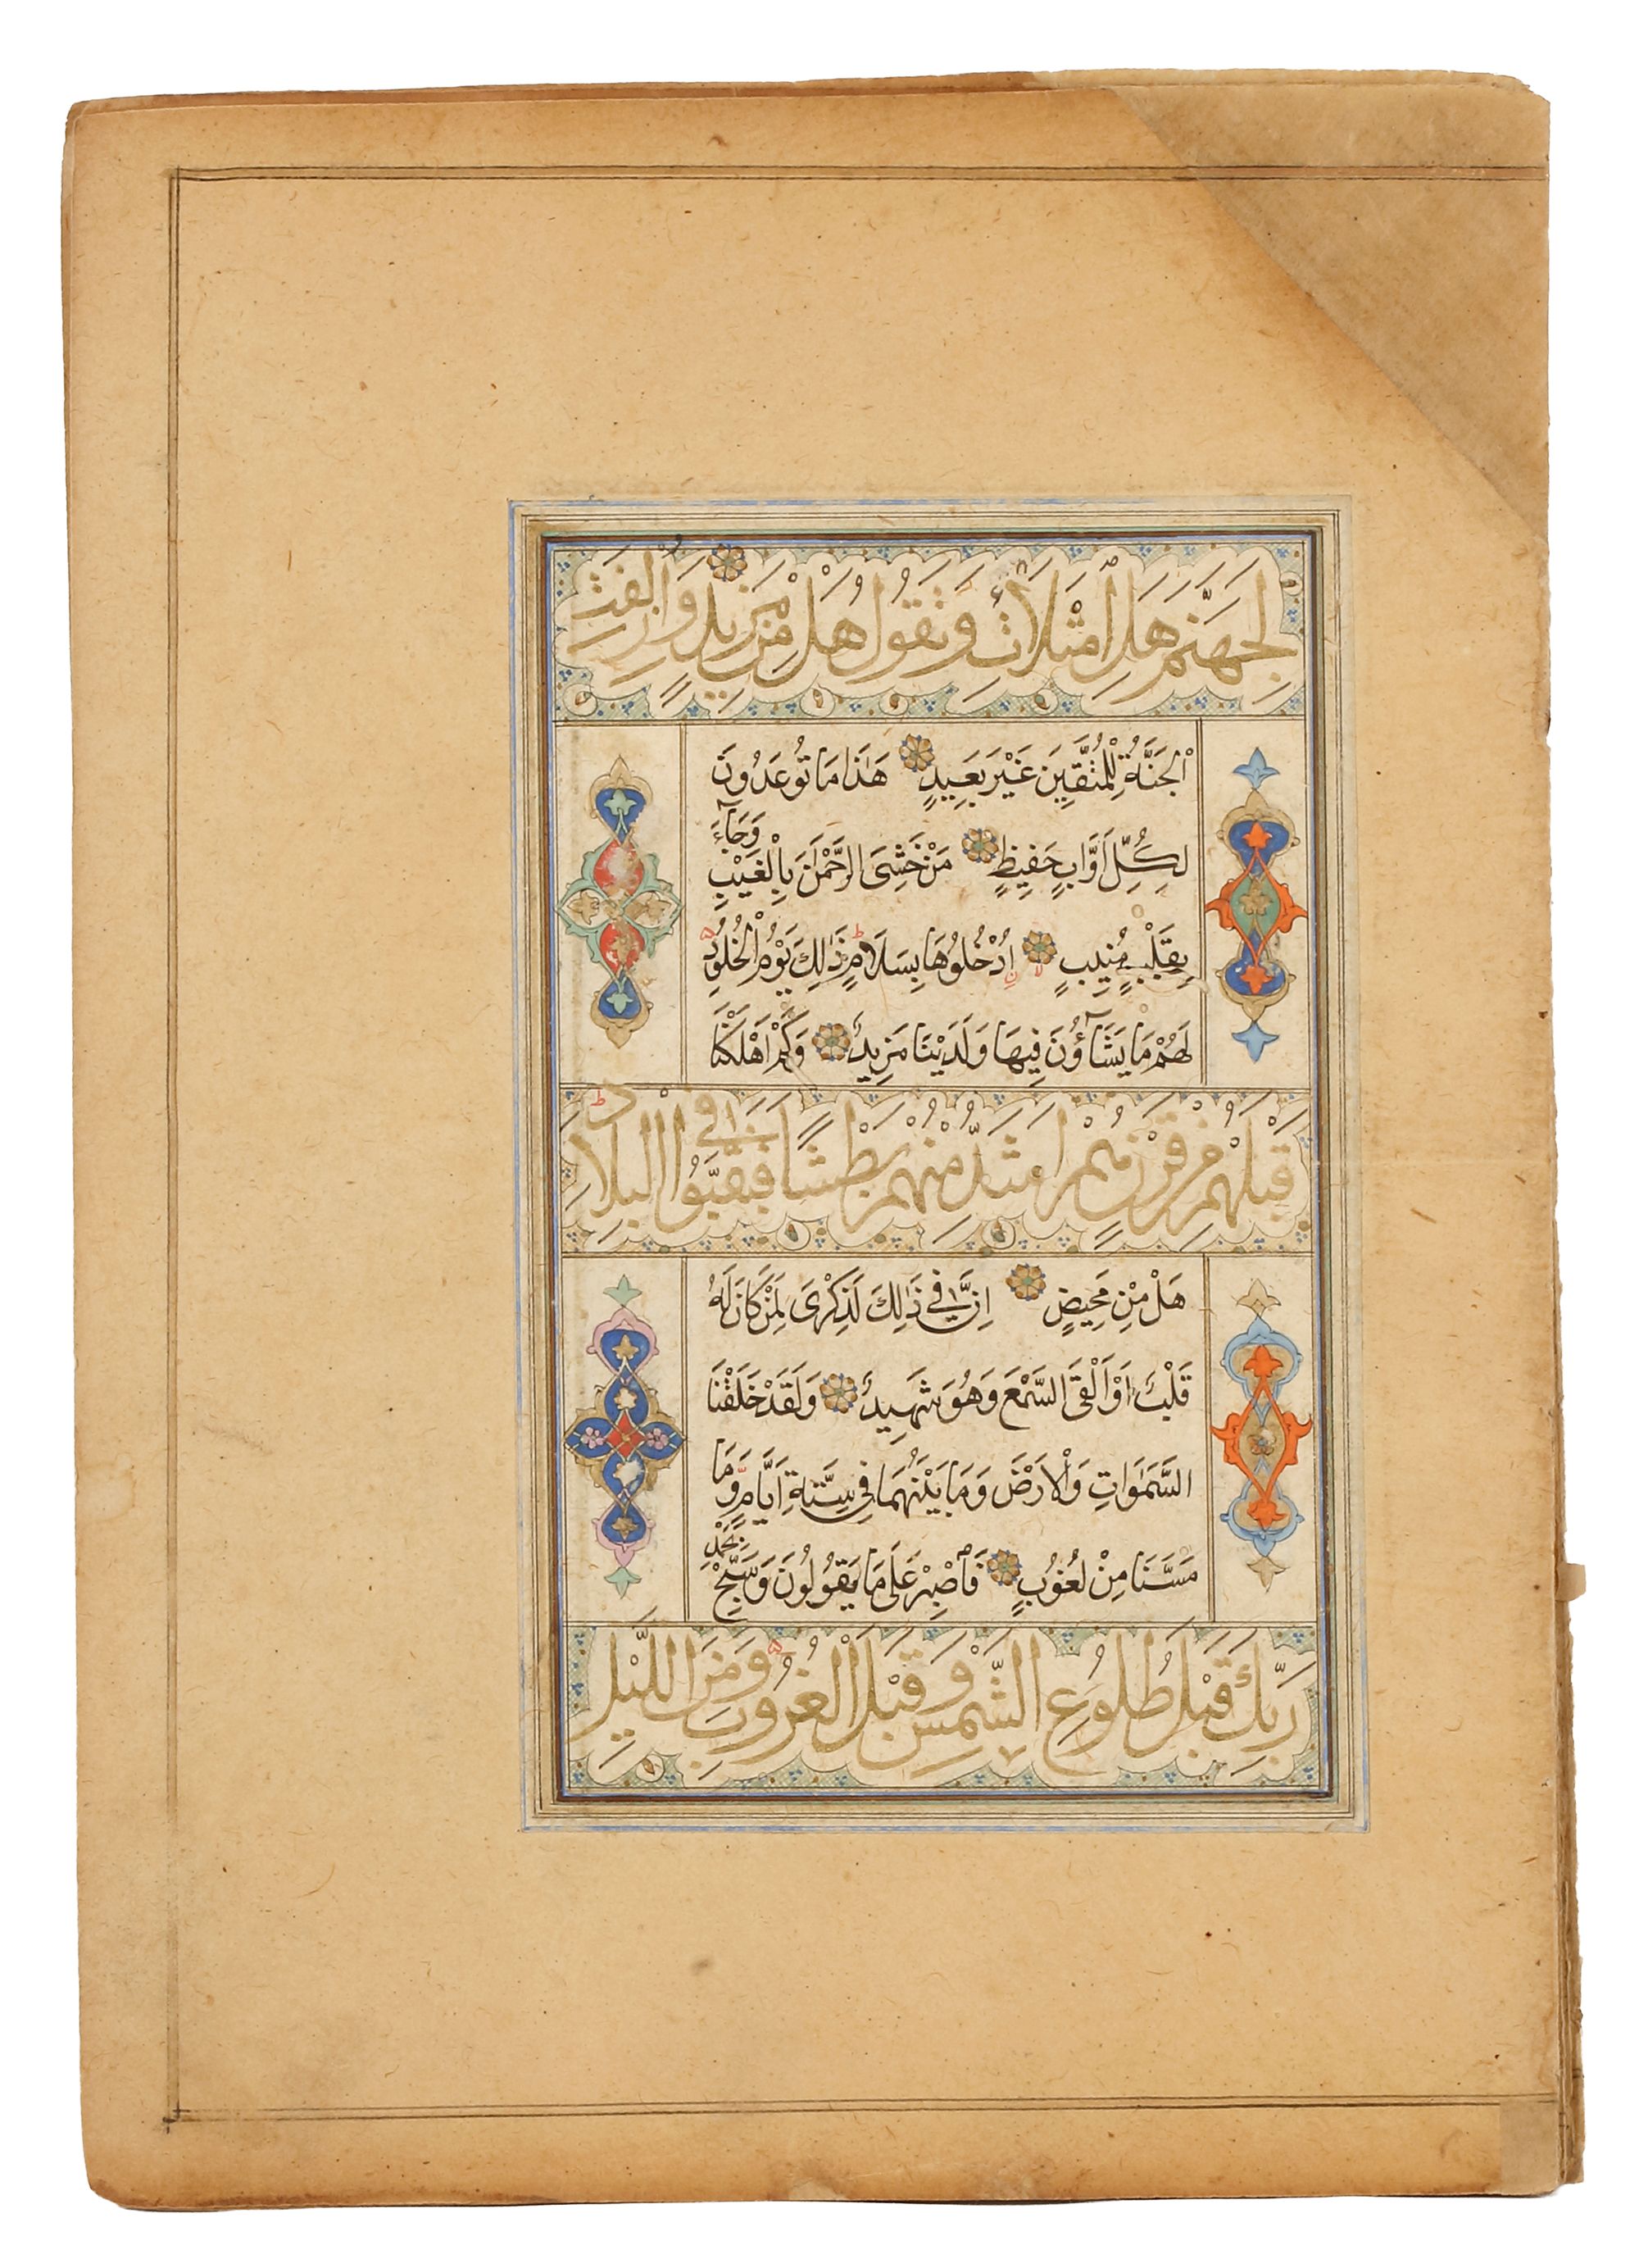 لِجَهَنَّمَ هَلِ ٱمْتَلَأْتِ وَتَقُولُ هَلْ مِنْ مَزِيدٍ وَأُزْلِفَتِ
ٱلْجَنَّةُ لِلْمُتَّقِينَ غَيْرَ بَعِيدٍ هٰذَا مَا تُوعَدُونَ
لِكُلِّ اَوَّابٍ حَفِيظٍ مَنْ خَشِىَ الرَّحْمٰنَ بِالْغَيْبِ وَجَآءَ
بِقَلْبٍ مُنِيبٍ اِدْخُلُوهَا بِسَلَامٍ ذٰلِكَ يَوْمُ الْخُلُودِ
لَهُمْ مَا يَشَآؤُنَ فِيهَا وَلَدَيْنَا مَزِيدٌ وَكَمْ اَهْلَكْنَا
قَبْلَهُمْ مِنْ قَرْنٍ هُمْ اَشَدُّ مِنْهُمْ بَطْشًا فَنَقَّبُوا فِى الْبِلَادِ
هَلْ مِنْ مَحِيصٍ اِنَّ فِى ذٰلِكَ لَذِكْرَى لِمَنْ كَانَ لَهُ
قَلْبٌ اَوْ اَلْقَى السَّمْعَ وَهُوَ شَهِيدٌ وَلَقَدْ خَلَقْنَا
السَّمٰوَاتِ وَالْاَرْضَ وَمَا بَيْنَهُمَا فِى سِتَّةِ اَيَّامٍ وَمَا
مَسَّنَا مِنْ لُغُوبٍ فَٱصْبِرْ عَلَى مَا يَقُولُونَ وَسَبِّحْ بِحَمْدِ
رَبِّكَ قَبْلَ طُلُوعِ الشَّمْسِ وَقَبْلَ الْغُرُوبِ وَمِنَ اللَّيْلِ